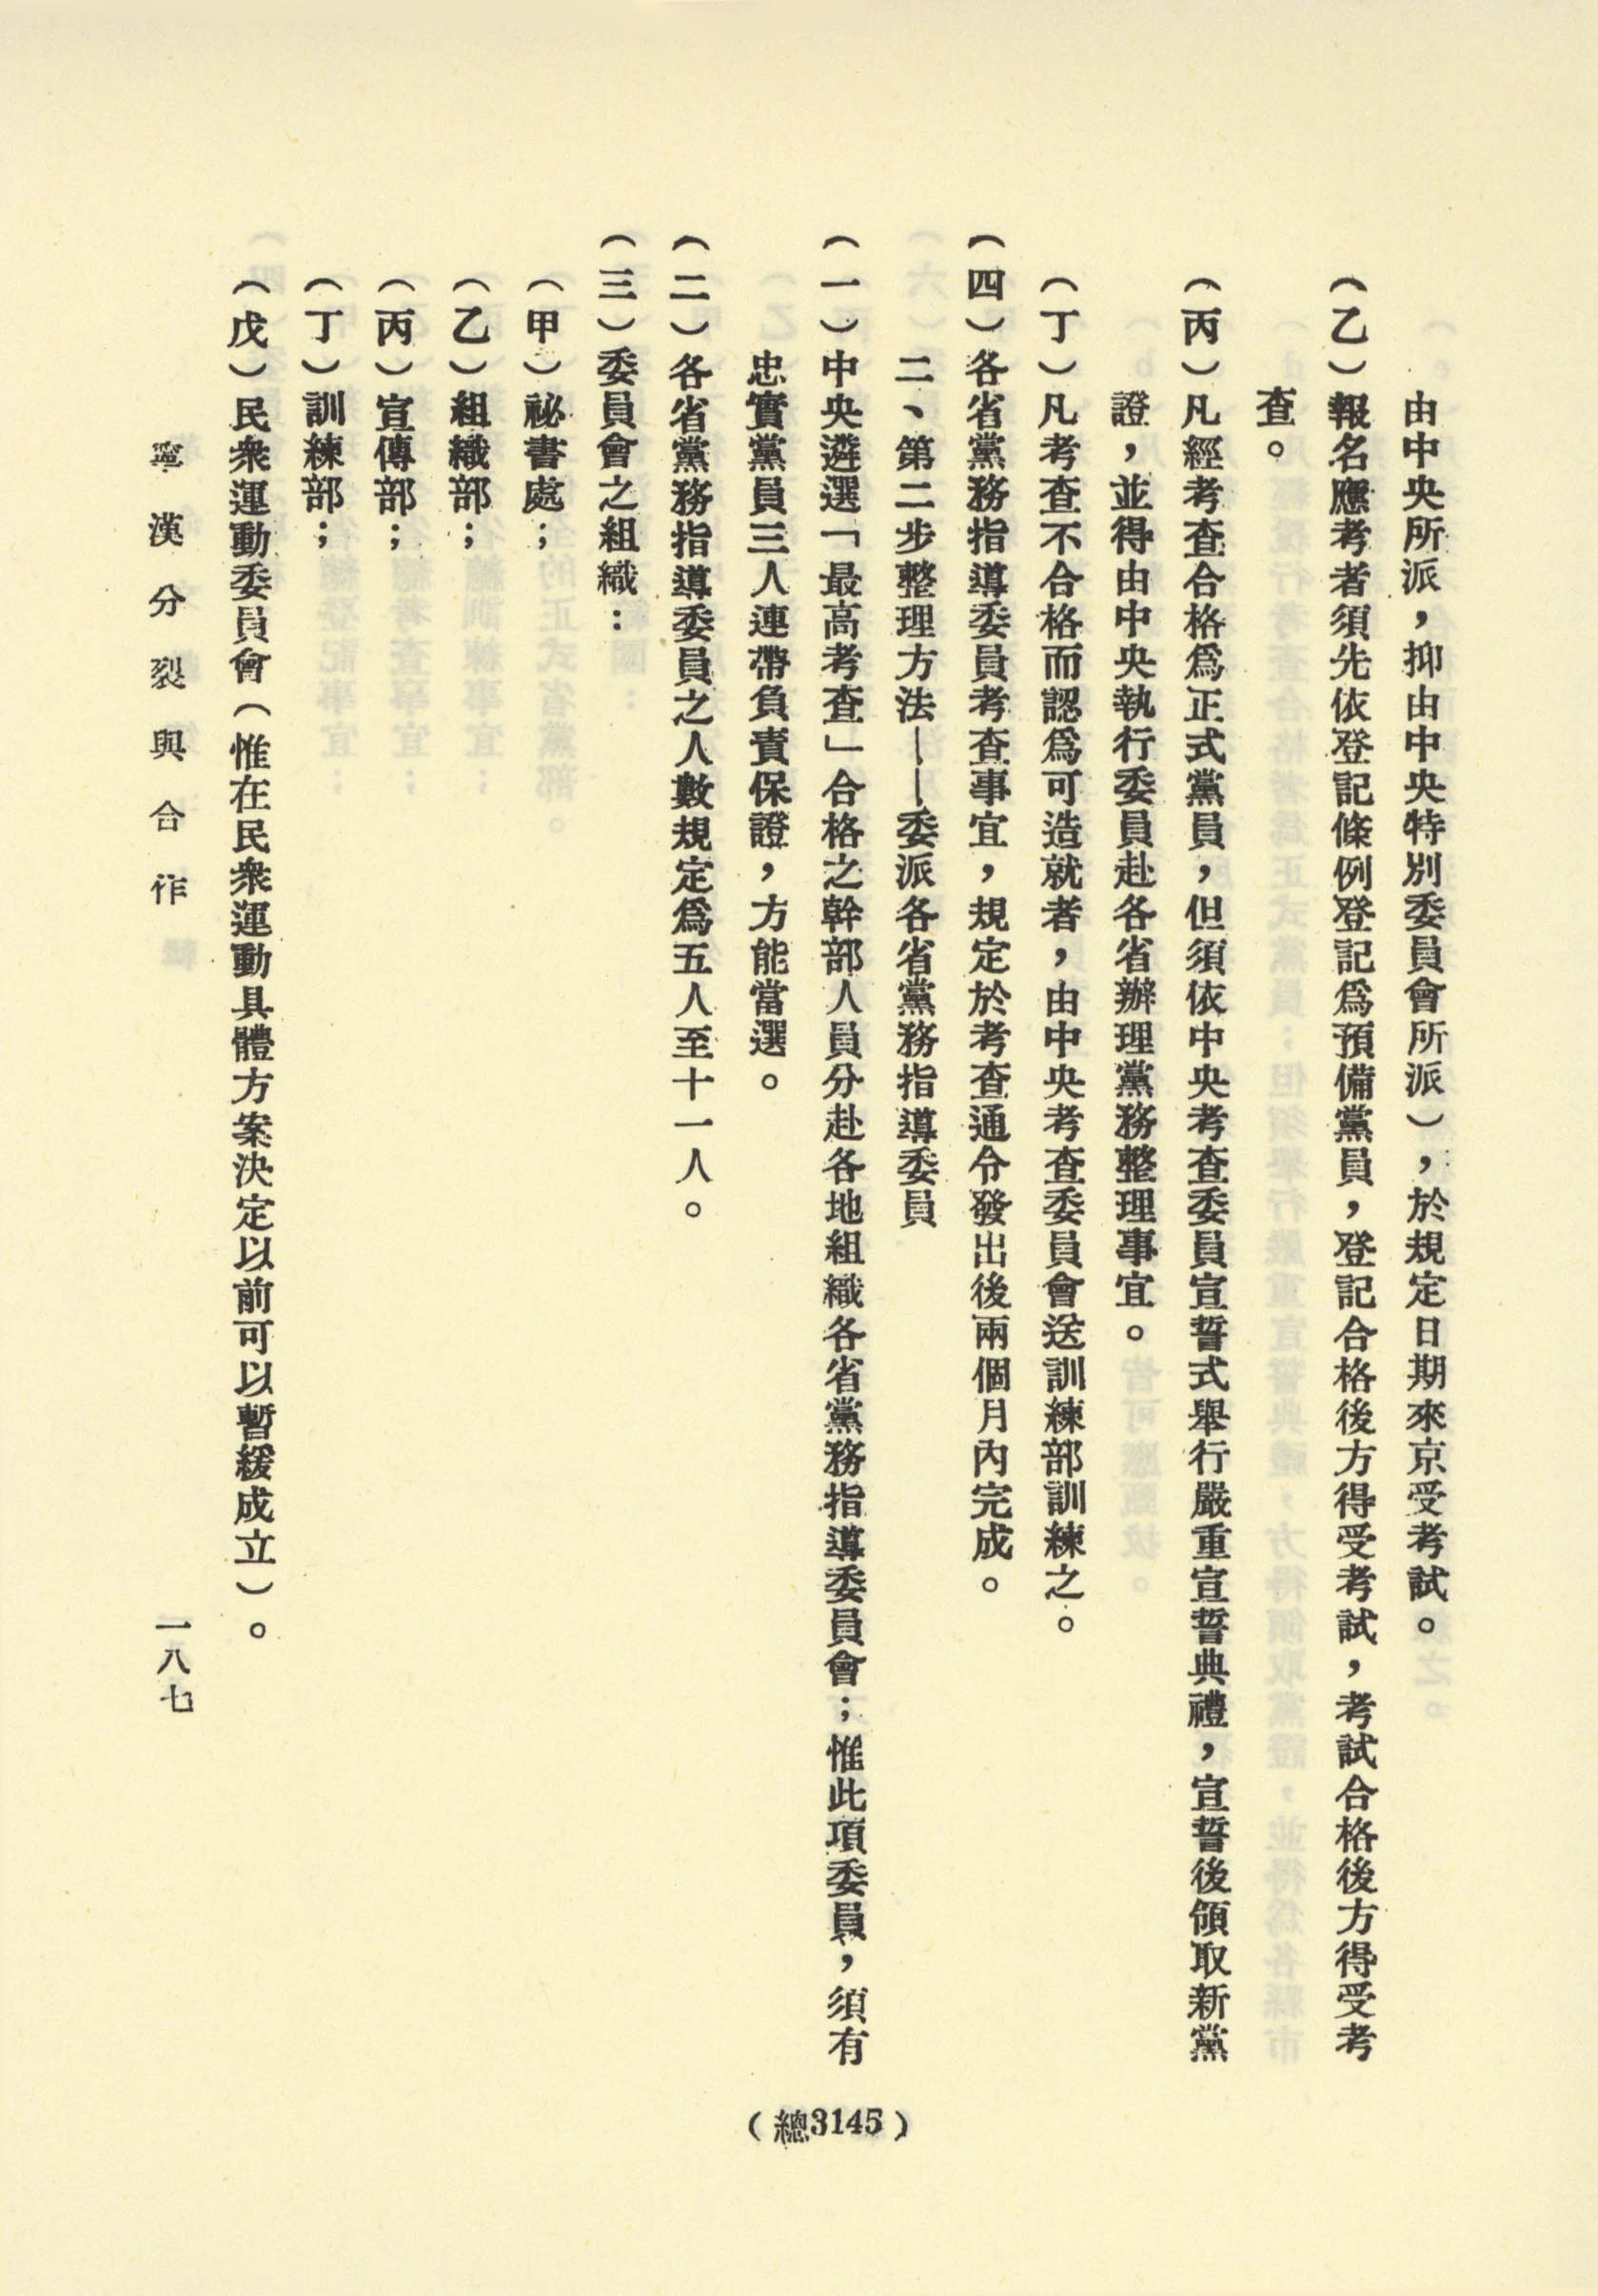 由中央所派，抑由中央特別委員會所派），於規定日期來京受考試。
（乙）報名應考者須先依登記條例登記爲預備黨員，登記合格後方得受考試，考試合格後方得受考
查。
（丙）凡經考查合格爲正式黨員，但須依中央考查委員宣誓式舉行嚴重宣誓典禮，宣誓後領取新黨
證，並得由中央執行委員赴各省辦理黨務整理事宜。
（丁）凡考查不合格而認爲可造就者，由中央考查委員會送訓練部訓練之。
（四）各省黨務指導委員考查事宜，規定於考查通令發出後兩個月內完成。
二、第二步整理方法——委派各省黨務指導委員
（一）中央遴選「最高考查」合格之幹部人員分赴各地組織各省黨務指導委員會；惟此項委員，須有
忠實黨員三人連帶負責保證，方能當選。
（二）各省黨務指導委員之人數規定爲五人至十一人。
（三）委員會之組織：
（甲）祕書處；
（乙）組織部；
（丙）宣傳部；
（丁）訓練部；
（戊）民衆運動委員會（惟在民衆運動具體方案決定以前可以暫緩成立）。
寧漢分裂與合作
一八七
（總3145）